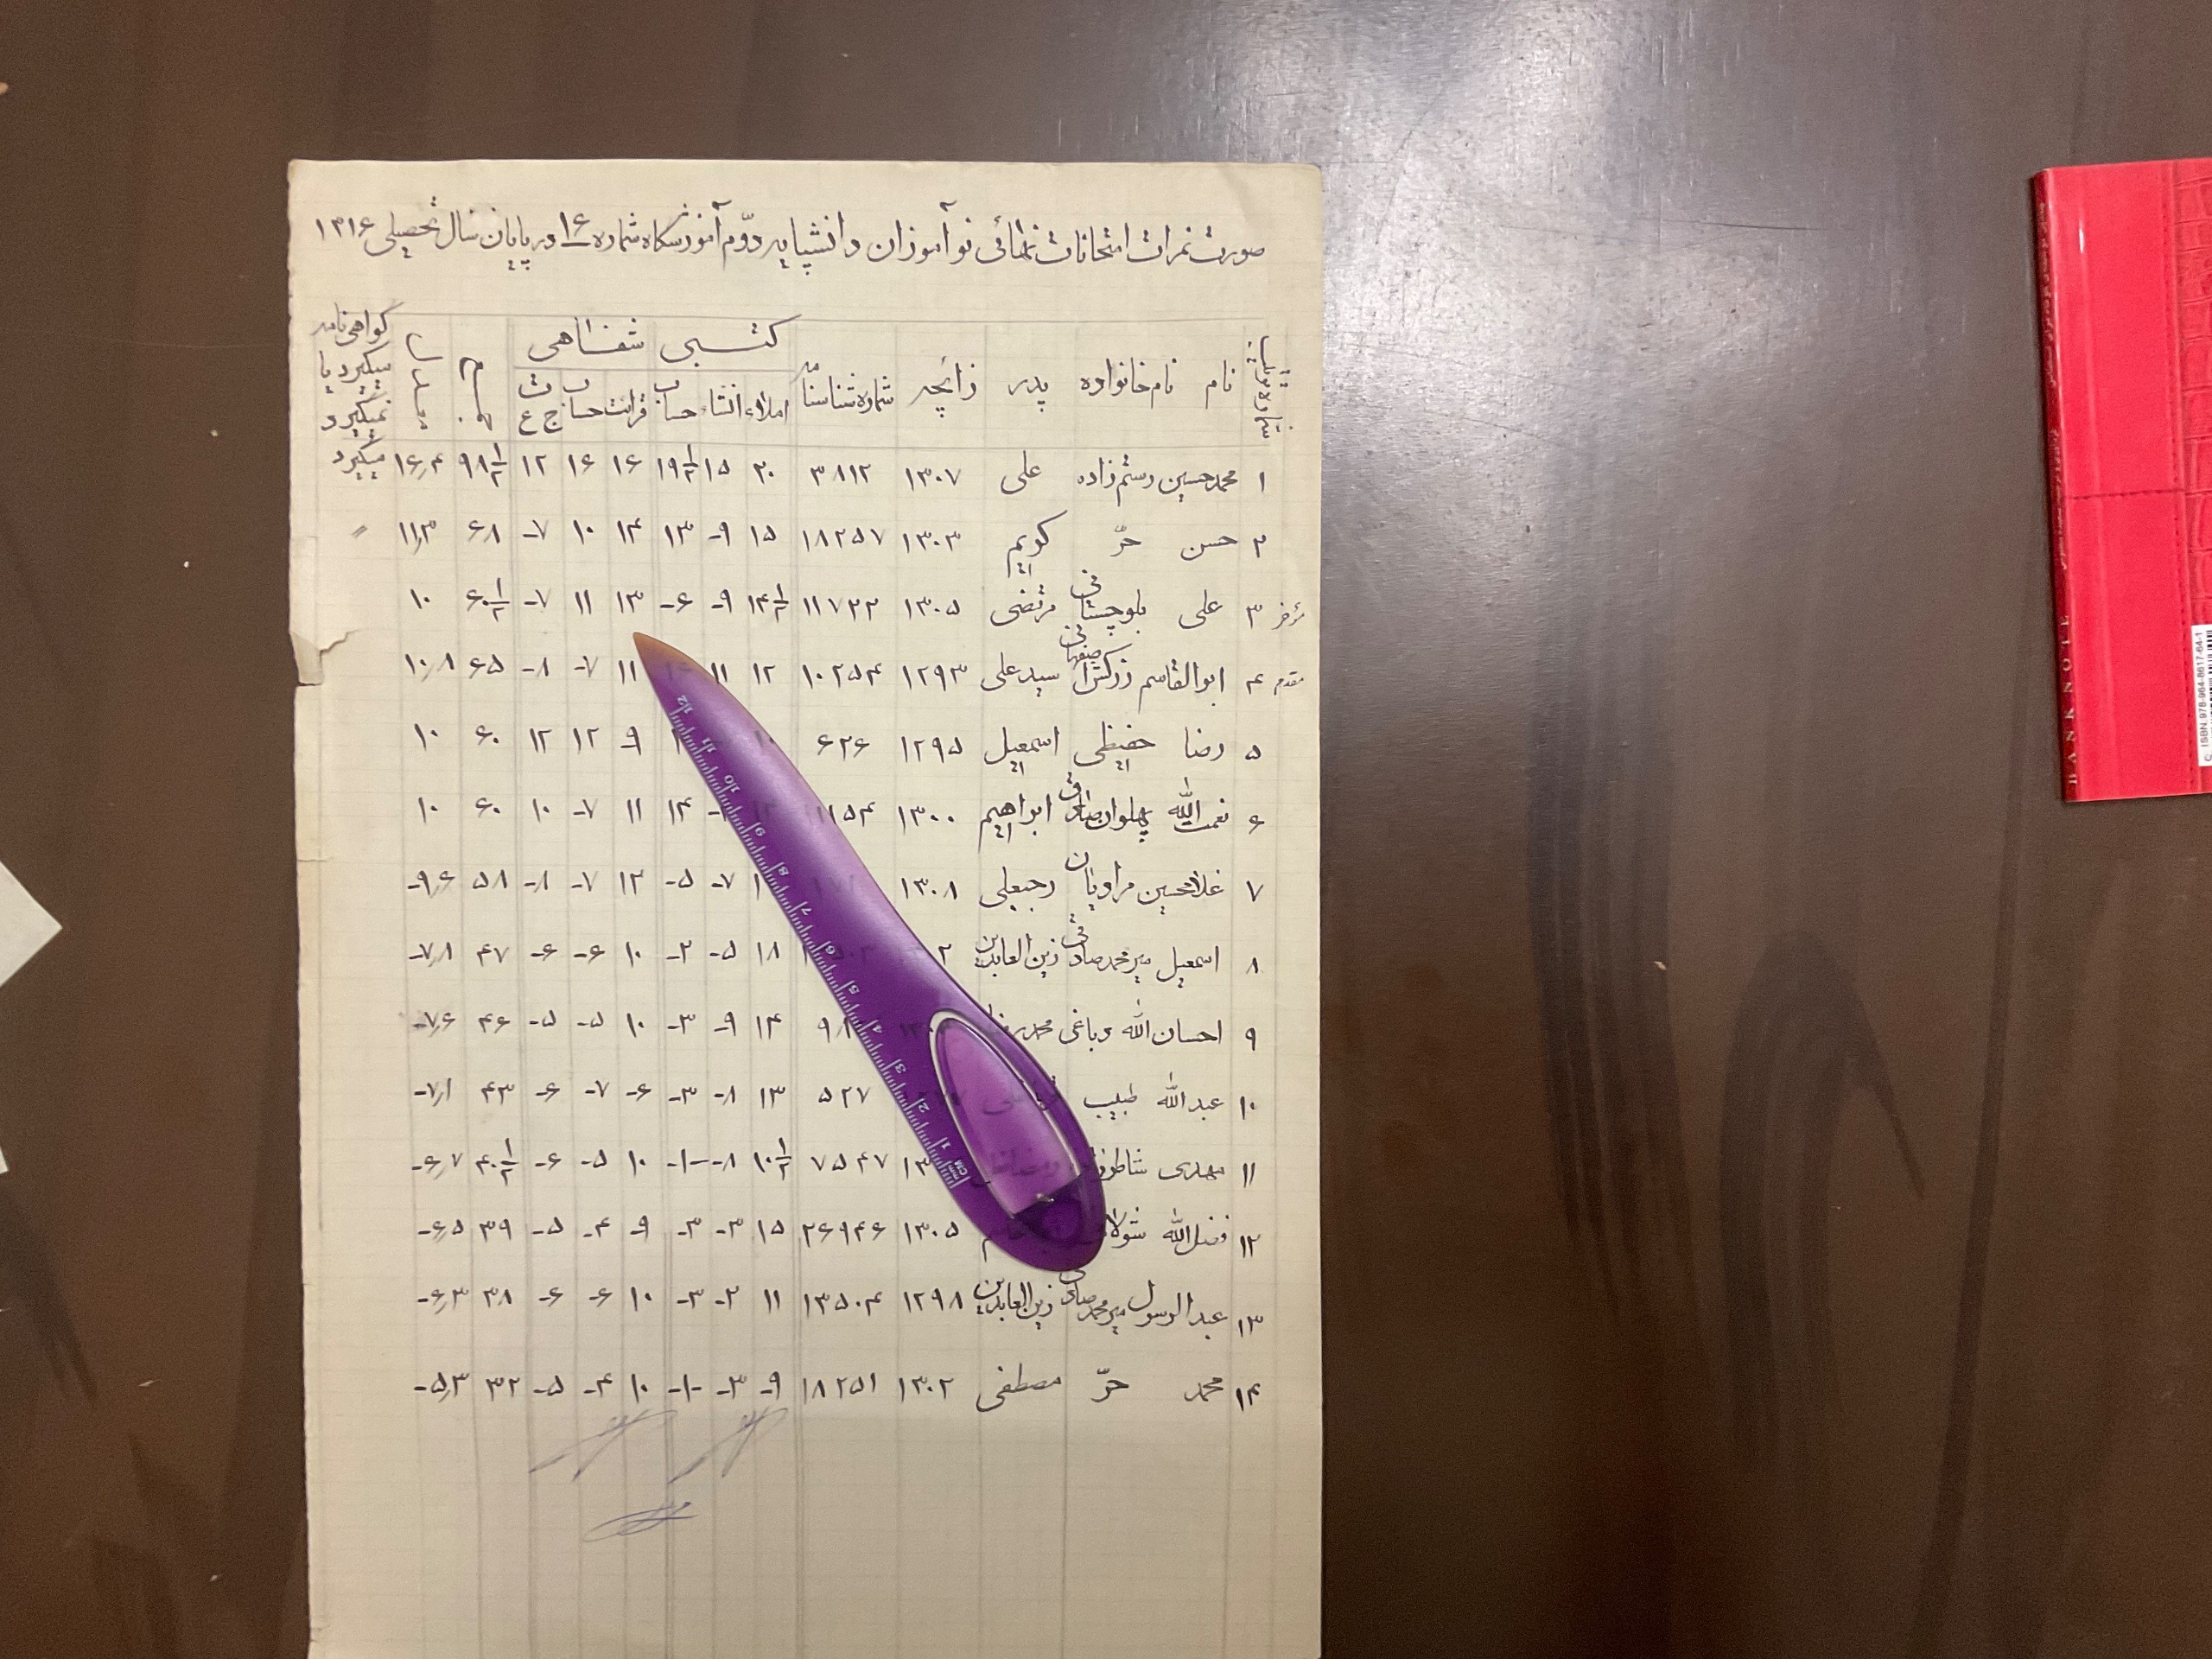 صورت نمرات امتحانات نهائی نوآموزان دانشپایه دوّم آموزشگاه شماره ۱۶ در پایان سال تحصیلی ۱۳۱۶
نام نام خانوادگی پدر زائچه شماره شناسنامه کتبی شفاهی گواهی نامه میگیرد یا نمیگیرد
املاء انشاء حساب قرائت حساب ج ع ت
۱ محمدحسین رستم زاده علی ۱۳۰۷ ۳۸۱۲ ۲۰ ۱۵ ۱۹ ۱/۲ ۱۶ ۱۶ ۱۲ ۹۸ ۱/۲ ۱۶٫۴ میگیرد
۲ حسن حرّ کریم ۱۳۰۳ ۱۸۲۵۷ ۱۵ ۹- ۱۳ ۱۴ ۱۰ ۷- ۶۸ ۱۱٫۳ "
۳ علی بلوچستانی مرتضی ۱۳۰۵ ۱۱۷۳۲ ۱۴ ۱/۲ ۹- ۶- ۱۳ ۱۱ ۷- ۶۰ ۱/۲ ۱۰
مقدم ۴ ابوالقاسم زرکش اصفهانی سید علی ۱۲۹۳ ۱۰۲۵۴ ۱۲ ۱۱ ۱۱ ۷- ۸- ۶۵ ۱۰٫۸
۵ رضا حفیظی اسمعیل ۱۲۹۵ ۶۲۶ ۹- ۱۲ ۱۲ ۶۰ ۱۰
۶ نعمت الله پهلوان صادقی ابراهیم ۱۳۰۰ ۱۴ ۱۱ ۷- ۱۰ ۶۰ ۱۰
۷ غلامحسین مرادیان رجبعلی ۱۳۰۸ ۷- ۵- ۱۲ ۷- ۸- ۵۸ ۹٫۶-
۸ اسمعیل میرمحمدصادقی زین العابدین ۱۸ ۵- ۲- ۱۰ ۶- ۶- ۴۷ ۷٫۸-
۹ احسان الله دباغی ۱۴ ۹- ۳- ۱۰ ۵- ۵- ۴۶ ۷٫۶-
۱۰ عبدالله طبیب ۵۲۷ ۱۳ ۸- ۳- ۶- ۷- ۶- ۴۳ ۷٫۱-
۱۱ مهدی ۷۵۴۷ ۱۰ ۱/۲ ۸- ۱- ۱۰ ۵- ۶- ۴۰ ۱/۲ ۶٫۷-
۱۲ فضل الله ۱۳۰۵ ۲۶۹۴۶ ۱۵ ۳- ۳- ۹- ۴- ۵- ۳۹ ۶٫۵-
۱۳ عبدالرسول میرمحمدصادقی زین العابدین ۱۲۹۸ ۱۳۵۰۴ ۱۱ ۲- ۳- ۱۰ ۶- ۶- ۳۸ ۶٫۳-
۱۴ محمد حرّ مصطفی ۱۳۰۲ ۱۸۲۵۱ ۹- ۳- ۱- ۱۰ ۴- ۵- ۳۲ ۵٫۳-
12 11 10 9 8 7 6 5 4 3 2 1
CM
BANKNOTE
ISBN 978-964-8617-64-1